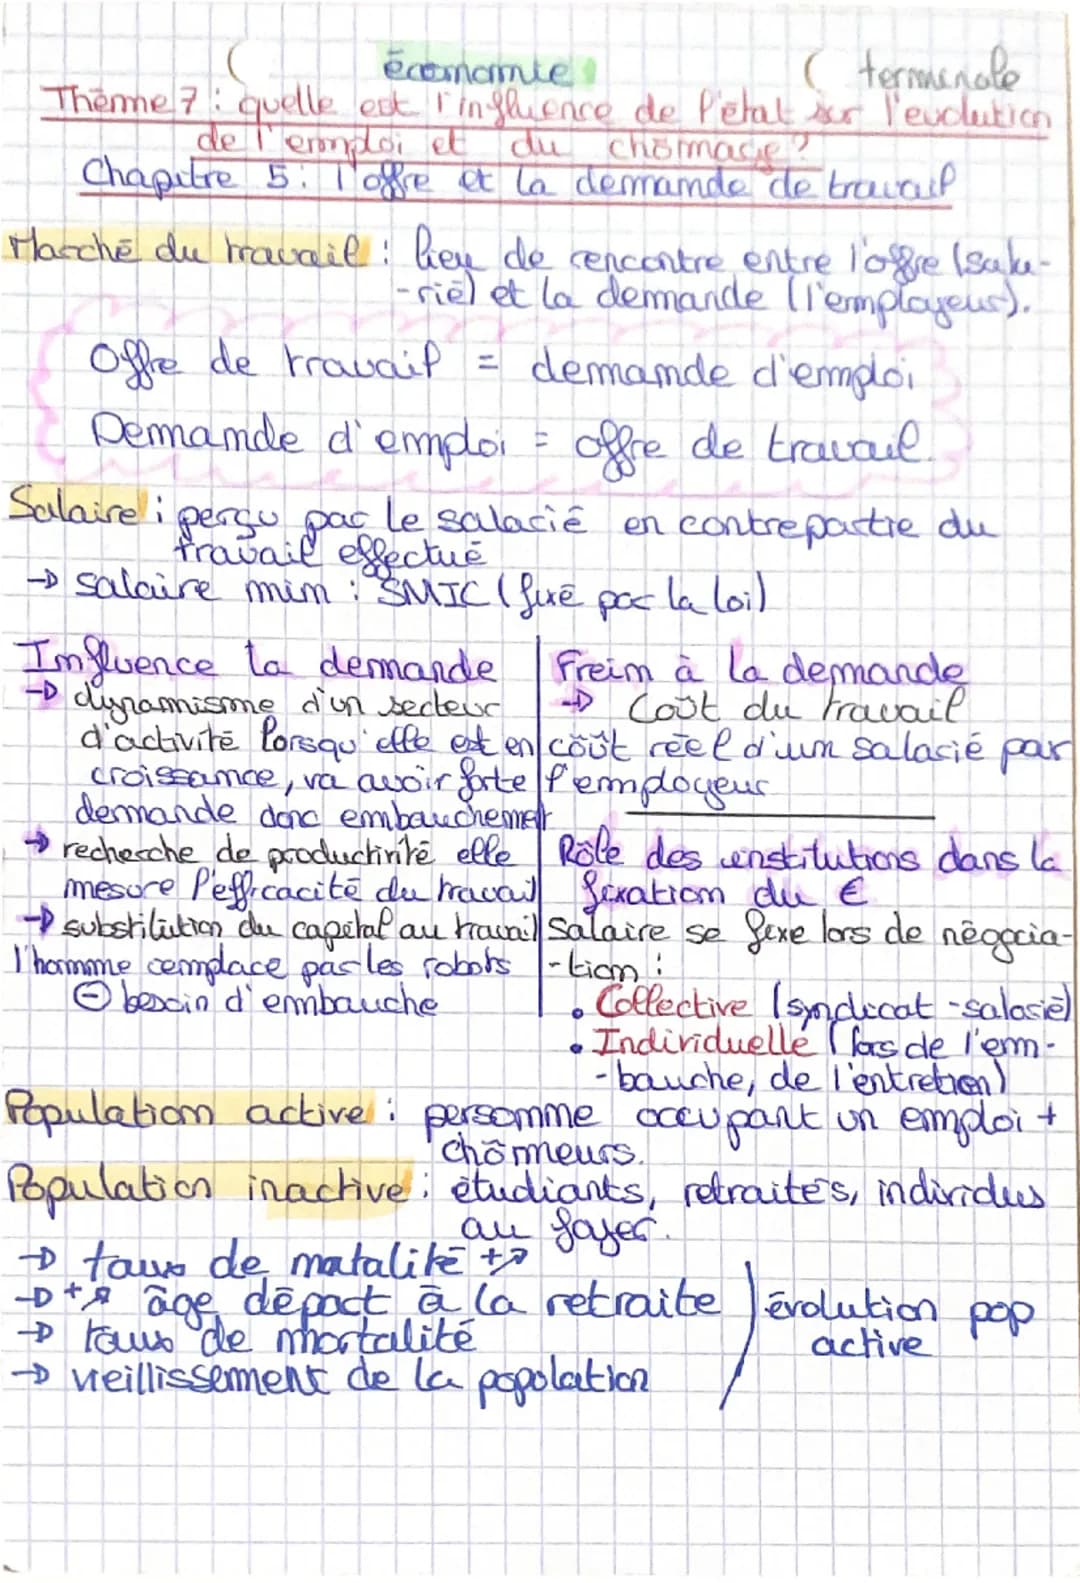 économie
terminale
Thème 7 : quelle est l'influence de l'état sur l'évolution
de l'emploi et du chômage ?
Chapitre 5 : l'offre et la demande de travail
Marché du travail : lieu de rencontre entre l'offre (sala-
-rié) et la demande (l'employeur).
Offre de travail = demande d'emploi
Demande d'emploi = offre de travail.
Salaire : perçu par le salarié en contrepartie du
travail effectué
→ salaire min : SMIC (fixé par la loi)
Influence la demande
→ dynamisme d'un secteur
d'activité lorsqu'elle est en
croissance, va avoir forte
demande donc embauchement
→ recherche de productivité elle
mesure l'efficacité du travail
→ substitution du capital au travail
l'homme remplace par les robots
⊖ besoin d'embauche
Frein à la demande
→ Coût du travail
coût réel d'un salarié par
l'employeur
Rôle des institutions dans la
fixation du €
Salaire se fixe lors de négocia-
-tion :
• Collective (syndicat - salarié)
• Individuelle (lors de l'em-
-bauche, de l'entretien)
Population active : personne occupant un emploi +
chômeurs.
Population inactive : étudiants, retraités, individus
au foyer.
→ taux de natalité +↗
→ +↗ âge départ à la retraite
→ taux de mortalité
→ vieillissement de la population
évolution pop
active